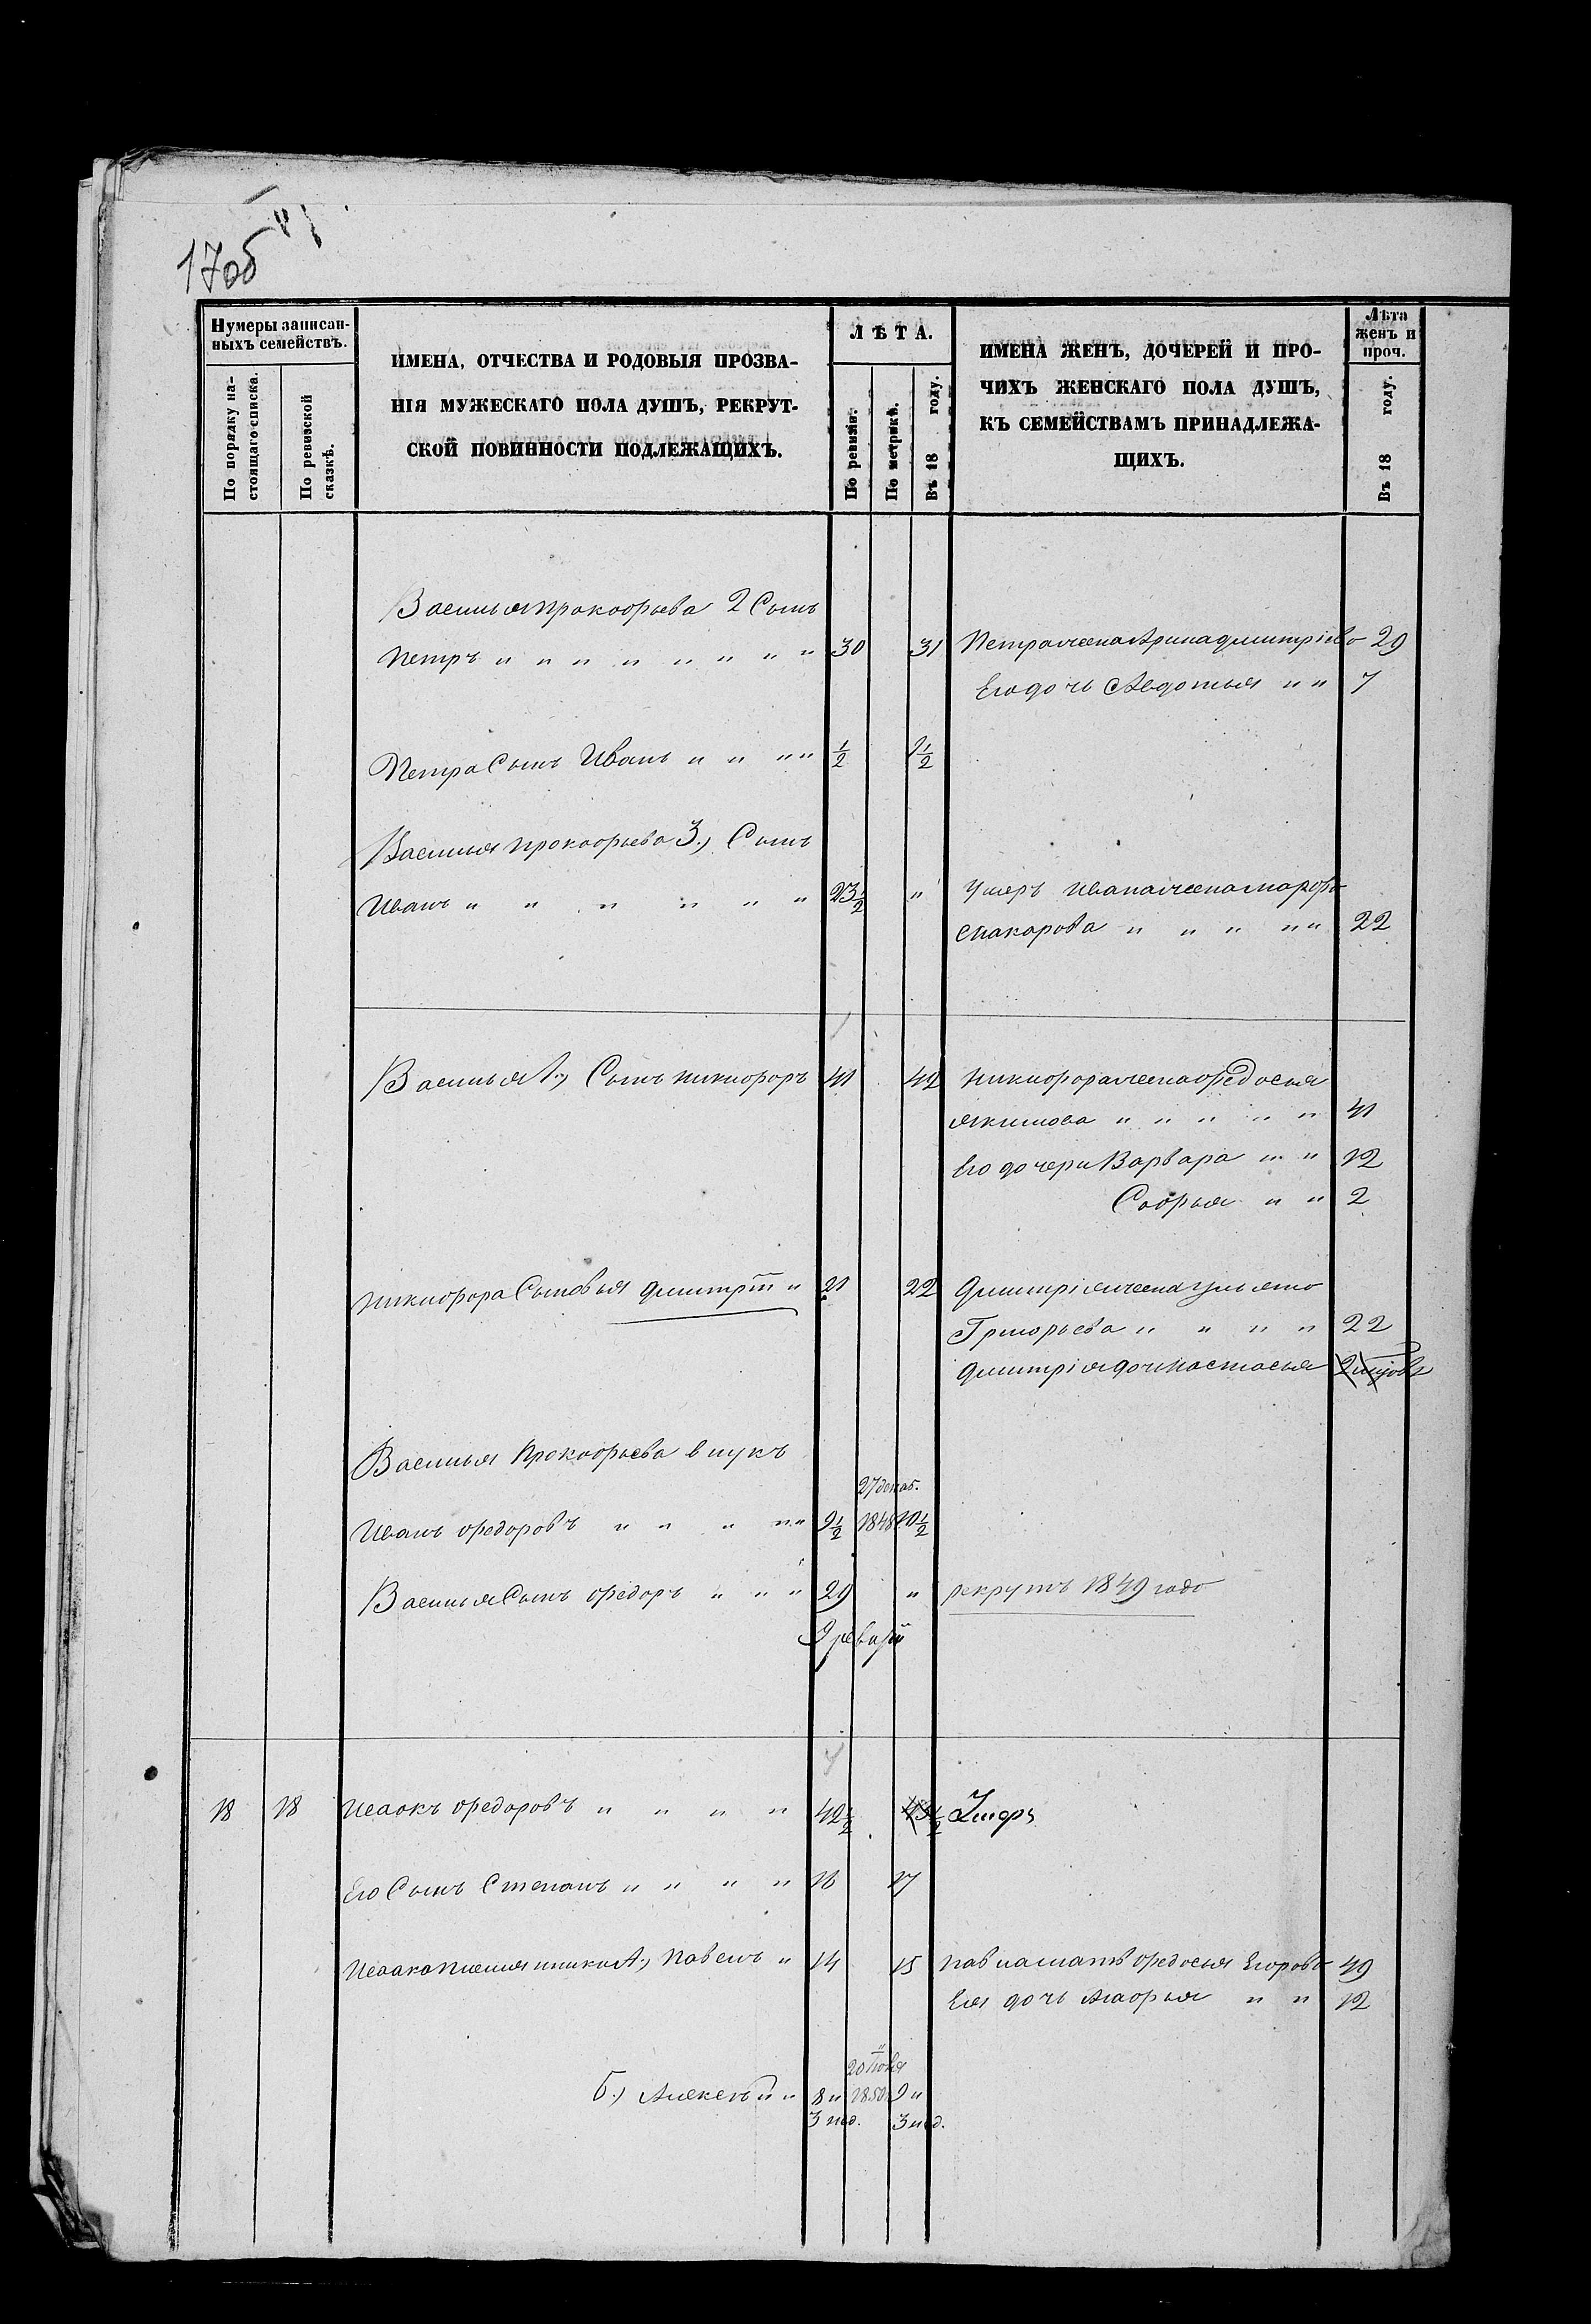 17об
Нумеры записан-
ныхъ семействъ.
По порядку на-
стоящаго списка.
По ревизской
сказкѣ.
ИМЕНА, ОТЧЕСТВА И РОДОВЫЯ ПРОЗВА-
НІЯ МУЖЕСКАГО ПОЛА ДУШЪ, РЕКРУТ-
СКОЙ ПОВИННОСТИ ПОДЛЕЖАЩИХЪ.
ЛѢТА.
По ревизіи.
По метрикѣ.
Въ 18 году.
ИМЕНА ЖЕНЪ, ДОЧЕРЕЙ И ПРО-
ЧИХЪ ЖЕНСКАГО ПОЛА ДУШЪ,
КЪ СЕМЕЙСТВАМЪ ПРИНАДЛЕЖА-
ЩИХЪ.
Лѣта
женъ и
проч.
Въ 18 году.
Василья Прокофьева 2 Сынъ
Петръ " " " " " " " " 30 31 Петра жена Арина Дмитріева 29
Его дочь Авдотья " " 7
Петра Сынъ Иванъ " " " " 1/2 1 1/2
Василья Прокофьева 3.) Сынъ
Иванъ " " " " " " 23 1/2 " Умеръ Ивана жена Марфа
Макарова " " " " " 22
Василья 1.) Сынъ Никифоръ 41 42 Никифора жена Федосья
Якимова " " " " " 41
Его дочери Варвара " " 12
Софья " " 2
Никифора Сыновья Дмитрій " 21 22 Дмитрія жена Ульяна
Григорьева " " " " 22
Дмитрія дочь Настасья
Василья Прокофьева внукъ
27 декаб.
Иванъ Федоровъ " " " " " 9 1/2 1848 10 1/2
Василья Сынъ Федоръ " " " 29 " рекрутъ 1849 года
9 ревизіи
18 18 Исаакъ Федоровъ " " " " 42 1/2 43 1/2 Умеръ
Его Сынъ Степанъ " " " " 16 17
Исаака племянники А.) Павелъ " 14 15 Павла мать Федосья Егорова 49
Ея дочь Марья " " 12
20 Іюня
Б.) Алексѣй " 8 " 1850 9 "
3 нед. 3 нед.